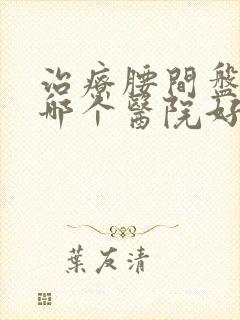 治療腰間盤
哪个醫院好
葉友清